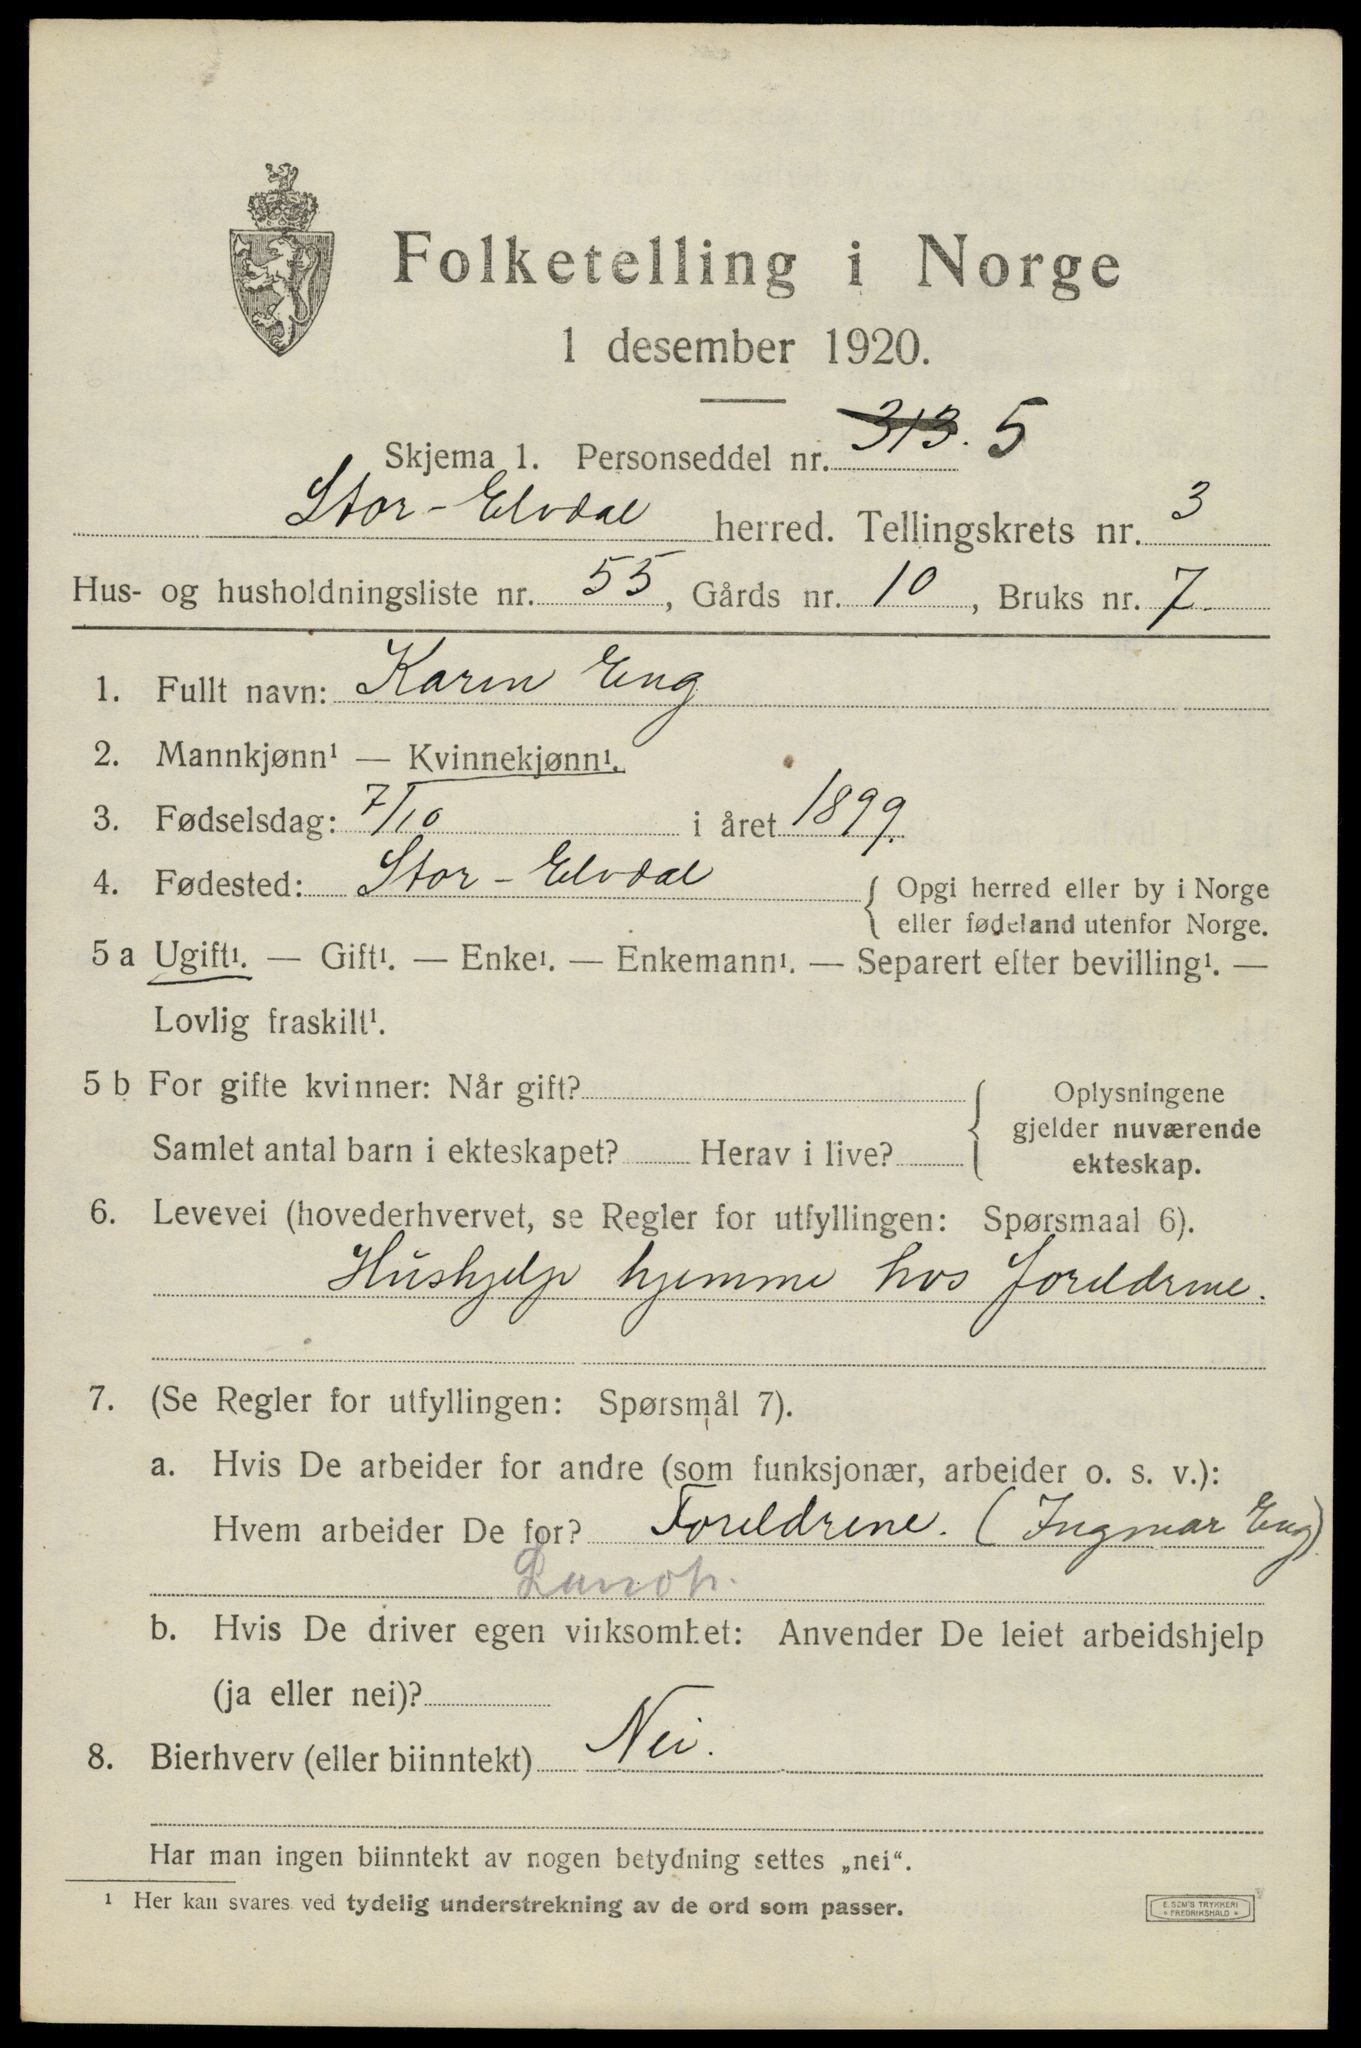 Folketelling i Norge
1 desember 1920.
Skjema 1. Personseddel nr. 313. 5
Stor-Elvdal herred. Tellingskrets nr. 3
Hus- og husholdningsliste nr. 55, Gårds nr. 10, Bruks nr. 7.
1. Fullt navn: Karen Eng
2. Mannkjønn¹ — Kvinnekjønn¹.
3. Fødselsdag: 7/10 i året 1899.
4. Fødested: Stor-Elvdal { Opgi herred eller by i Norge
eller fødeland utenfor Norge.
5 a Ugift¹. — Gift¹. — Enke¹. — Enkemann¹. — Separert efter bevilling¹. —
Lovlig fraskilt¹.
5 b For gifte kvinner: Når gift?
Samlet antal barn i ekteskapet? Herav i live?
{ Oplysningene
gjelder nuværende
ekteskap.
6. Levevei (hovederhvervet, se Regler for utfyllingen: Spørsmaal 6).
Hushjelp hjemme hos foreldrene.
7. (Se Regler for utfyllingen: Spørsmål 7).
a. Hvis De arbeider for andre (som funksjonær, arbeider o. s. v.):
Hvem arbeider De for? Foreldrene. (Ingmar Eng)
b. Hvis De driver egen virksomhet: Anvender De leiet arbeidshjelp
(ja eller nei)?
8. Bierhverv (eller biinntekt) Nei.
Har man ingen biinntekt av nogen betydning settes „nei“.
¹ Her kan svares ved tydelig understrekning av de ord som passer.
E. SEM'S TRYKKERI
* FREDRIKSHALD *